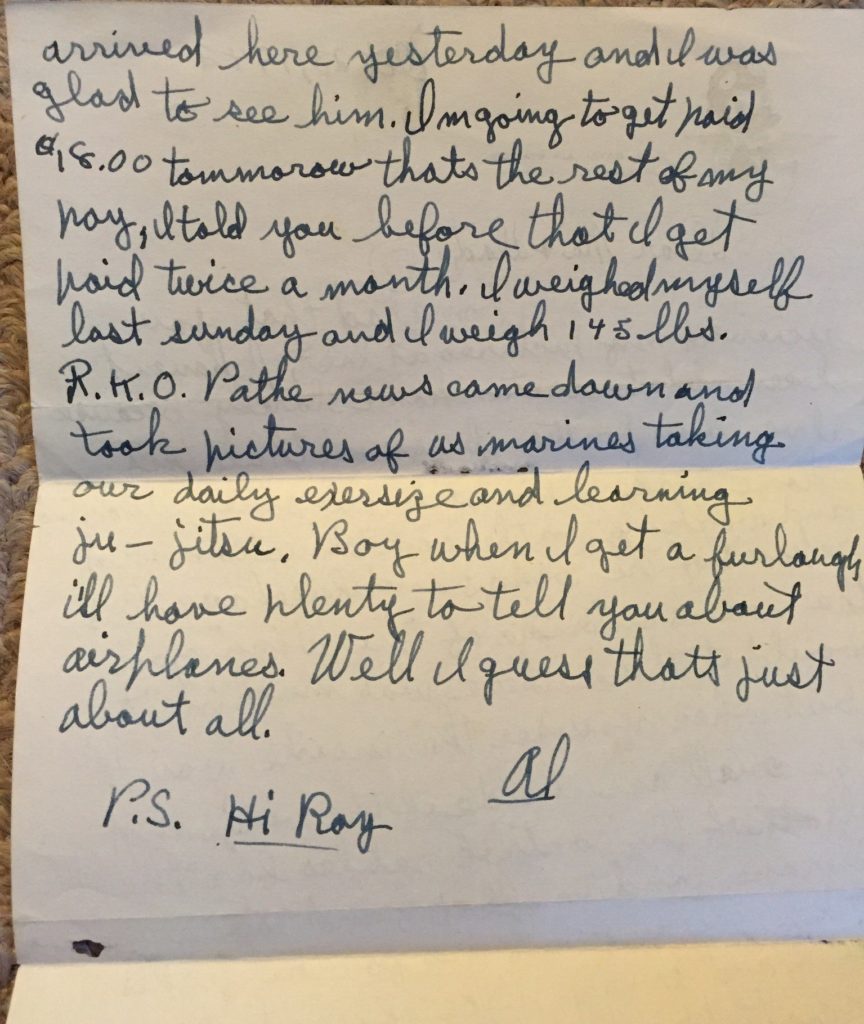 arrived here yesterday and I was
glad to see him. I'm going to get paid
$18.00 tommorow thats the rest of my
pay, I told you before that I get
paid twice a month. I weighed myself
last sunday and I weigh 145 lbs.
R.K.O. Pathe news came down and
took pictures of us marines taking
our daily exersize and learning
ju-jitsu. Boy when I get a furlough
i'll have plenty to tell you about
airplanes. Well I guess thats just
about all.
Al
P.S. Hi Roy